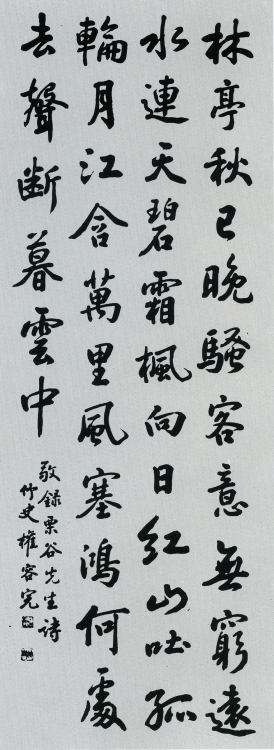 林亭秋已晚騷客意無窮遠
水連天碧霜楓向日紅山吐孤
輪月江含萬里風塞鴻何處
去聲斷暮雲中
敬錄栗谷先生詩
竹史權容完